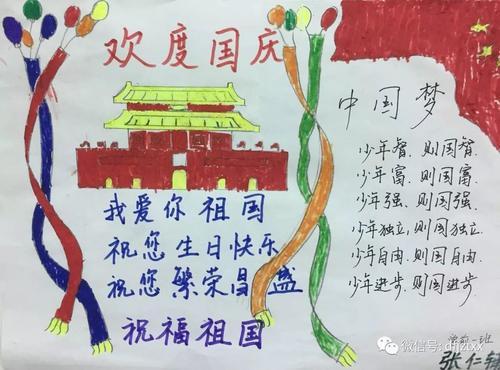 欢度国庆
我爱你祖国
祝您生日快乐
祝您繁荣昌盛
祝福祖国
中国梦
少年智.则国智.
少年富.则国富.
少年强.则国强.
少年独立,则国独立
少年自由.则国自由.
少年进步.则国进步
一班
张仁
微信号: